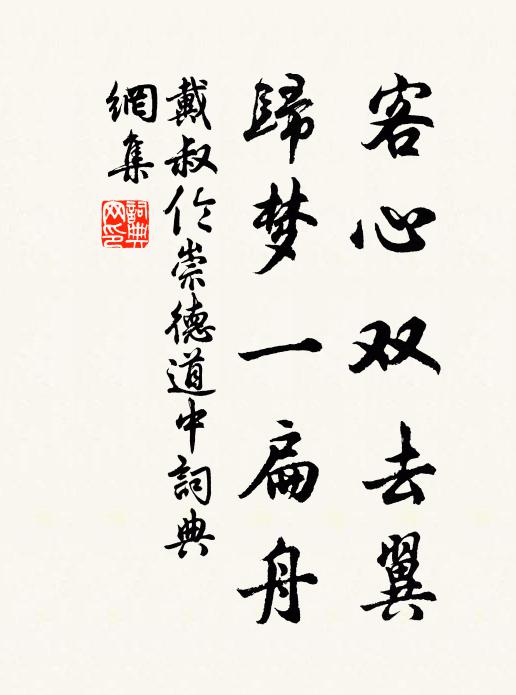 客心双去翼
歸梦一扁舟
戴叔伦崇德道中詞典
網集
詞典
网印